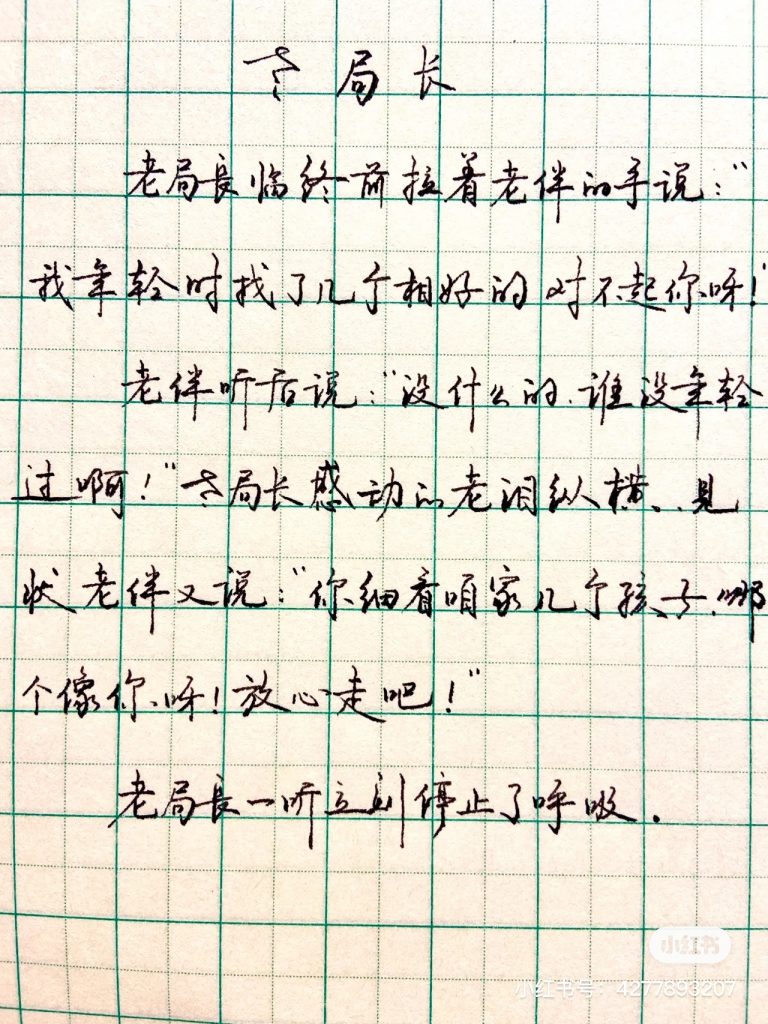 老局长
老局長临终前拉着老伴的手说："
我年轻时找了几个相好的对不起你呀！"
老伴听后说："没什么的.谁没年轻
过啊！"老局长感动的老泪纵横、.見
状老伴又说："你细看咱家几个孩子.哪
个像你呀！放心走吧！"
老局長一听立刻停止了呼吸.
小红书
小红书号：4277893207